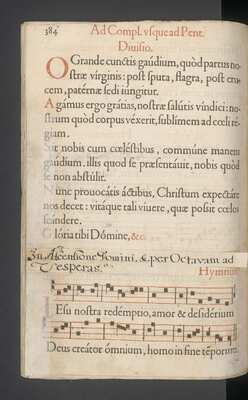 384
Ad Compl. vsque ad Pent.
Diuisio.
O Grande cunctis gaúdium, quòd partus no-
stræ vírginis: post sputa, flagra, post cru
cem, patérnæ sedi iúngitur.
Agámus ergo grátias, nostræ salútis víndici: no-
strum quòd corpus véxerit, sublímem ad cœli ré-
giam.
Sit nobis cum cœléstibus, commúne manens
gaúdium. illis quod se præsentáuit, nobis quòd
se non abstúlit.
Nunc prouocátis áctibus, Christum expectáre
nos decet: vitáque tali víuere, quæ possit cœlos
scándere.
Glória tibi Dómine, &c.
In Ascensione Domini, & per Octavam ad
Vesperas.
Hymnus
Iesu nostra redémptio, amor & desidérium
Deus creátor ómnium, homo in fine témporum